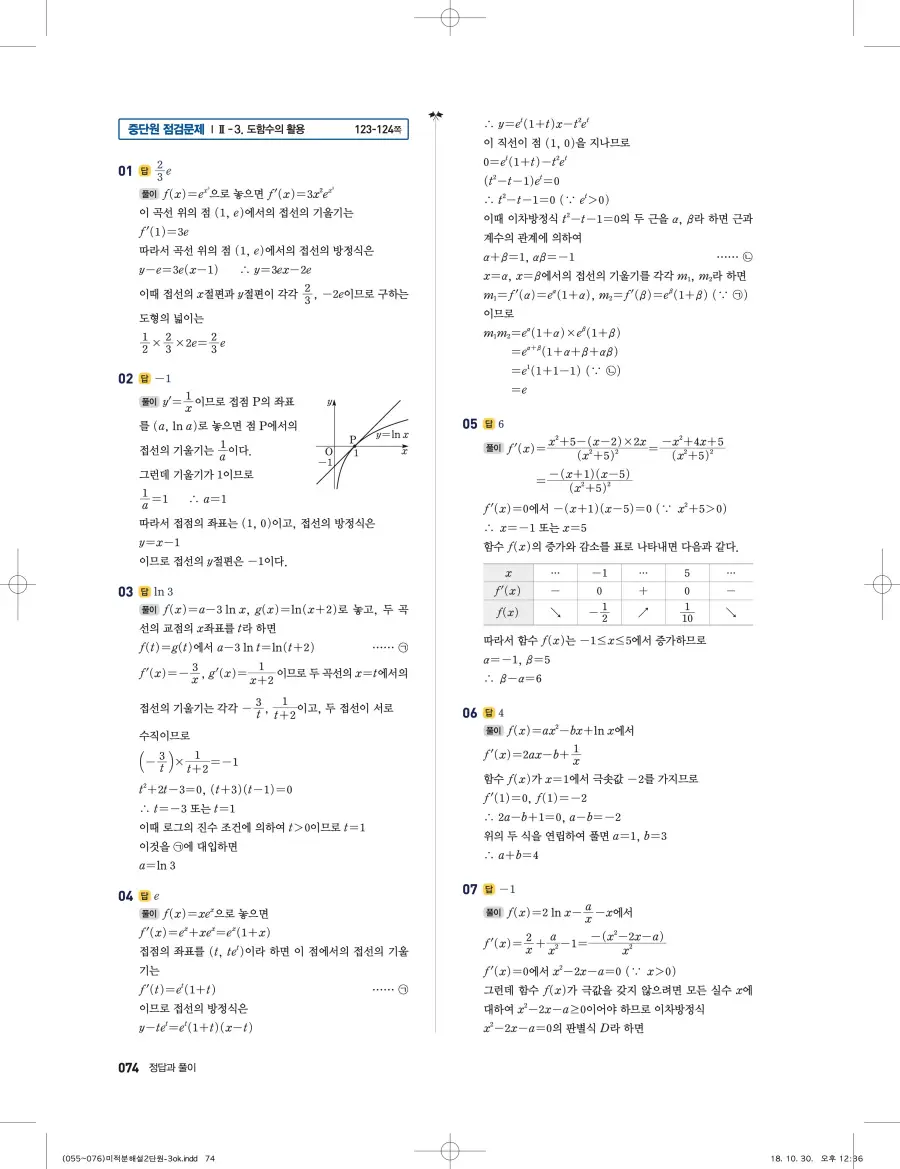 중단원 점검문제 | Ⅱ-3. 도함수의 활용 123-124쪽
01 답 2/3 e
풀이 f(x)=e^{x³}으로 놓으면 f′(x)=3x²e^{x³}
이 곡선 위의 점 (1, e)에서의 접선의 기울기는
f′(1)=3e
따라서 곡선 위의 점 (1, e)에서의 접선의 방정식은
y-e=3e(x-1) ∴ y=3ex-2e
이때 접선의 x절편과 y절편이 각각 2/3, -2e이므로 구하는
도형의 넓이는
1/2×2/3×2e=2/3 e
02 답 -1
풀이 y′=1/x이므로 접점 P의 좌표
를 (a, ln a)로 놓으면 점 P에서의
접선의 기울기는 1/a이다.
그런데 기울기가 1이므로
1/a=1 ∴ a=1
y
P
y=ln x
O
1
x
-1
따라서 접점의 좌표는 (1, 0)이고, 접선의 방정식은
y=x-1
이므로 접선의 y절편은 -1이다.
03 답 ln 3
풀이 f(x)=a-3 ln x, g(x)=ln(x+2)로 놓고, 두 곡
선의 교점의 x좌표를 t라 하면
f(t)=g(t)에서 a-3 ln t=ln(t+2) …… ㉠
f′(x)=-3/x, g′(x)=1/(x+2)이므로 두 곡선의 x=t에서의
접선의 기울기는 각각 -3/t, 1/(t+2)이고, 두 접선이 서로
수직이므로
(-3/t)×1/(t+2)=-1
t²+2t-3=0, (t+3)(t-1)=0
∴ t=-3 또는 t=1
이때 로그의 진수 조건에 의하여 t>0이므로 t=1
이것을 ㉠에 대입하면
a=ln 3
04 답 e
풀이 f(x)=xe^x으로 놓으면
f′(x)=e^x+xe^x=e^x(1+x)
접점의 좌표를 (t, te^t)이라 하면 이 점에서의 접선의 기울
기는
f′(t)=e^t(1+t) …… ㉠
이므로 접선의 방정식은
y-te^t=e^t(1+t)(x-t)
∴ y=e^t(1+t)x-t²e^t
이 직선이 점 (1, 0)을 지나므로
0=e^t(1+t)-t²e^t
(t²-t-1)e^t=0
∴ t²-t-1=0 (∵ e^t>0)
이때 이차방정식 t²-t-1=0의 두 근을 α, β라 하면 근과
계수의 관계에 의하여
α+β=1, αβ=-1 …… ㉡
x=α, x=β에서의 접선의 기울기를 각각 m₁, m₂라 하면
m₁=f′(α)=e^α(1+α), m₂=f′(β)=e^β(1+β) (∵ ㉠)
이므로
m₁m₂=e^α(1+α)×e^β(1+β)
=e^{α+β}(1+α+β+αβ)
=e¹(1+1-1) (∵ ㉡)
=e
05 답 6
풀이 f′(x)=(x²+5-(x-2)×2x)/(x²+5)²=(-x²+4x+5)/(x²+5)²
=-(x+1)(x-5)/(x²+5)²
f′(x)=0에서 -(x+1)(x-5)=0 (∵ x²+5>0)
∴ x=-1 또는 x=5
함수 f(x)의 증가와 감소를 표로 나타내면 다음과 같다.
x … -1 … 5 …
f′(x) - 0 + 0 -
f(x) ↘ -1/2 ↗ 1/10 ↘
따라서 함수 f(x)는 -1≤x≤5에서 증가하므로
α=-1, β=5
∴ β-α=6
06 답 4
풀이 f(x)=ax²-bx+ln x에서
f′(x)=2ax-b+1/x
함수 f(x)가 x=1에서 극솟값 -2를 가지므로
f′(1)=0, f(1)=-2
∴ 2a-b+1=0, a-b=-2
위의 두 식을 연립하여 풀면 a=1, b=3
∴ a+b=4
07 답 -1
풀이 f(x)=2 ln x-a/x-x에서
f′(x)=2/x+a/x²-1=-(x²-2x-a)/x²
f′(x)=0에서 x²-2x-a=0 (∵ x>0)
그런데 함수 f(x)가 극값을 갖지 않으려면 모든 실수 x에
대하여 x²-2x-a≥0이어야 하므로 이차방정식
x²-2x-a=0의 판별식 D라 하면
074 정답과 풀이
(055~076)미적분해설2단원-3ok.indd 74 18. 10. 30. 오후 12:36